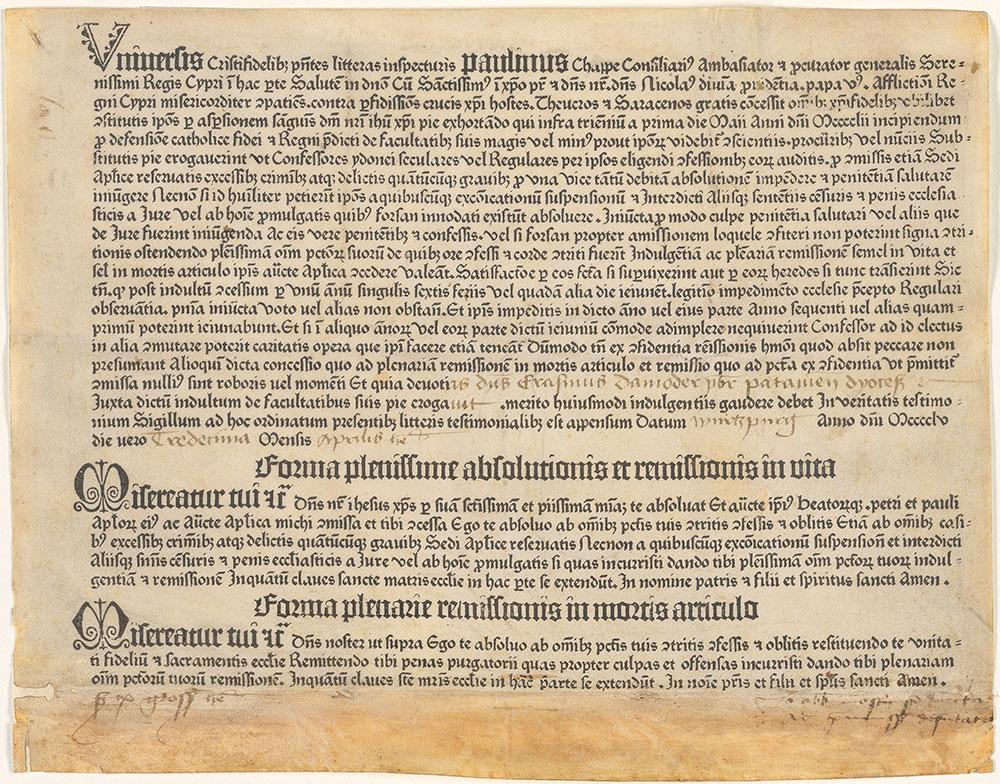 Vniuersis Cristifidelibꝫ pn̄tes litteras inspecturis Paulinus Chappe Consiliariꝰ Ambasiator ⁊ ꝓcurator generalis Sere⸗
nissimi Regis Cypri ī hac ꝑte Salutē in dnō Cū Sāctissimꝰ ī xp̄o pr̄ ⁊ dn̄s nr̄. dn̄s Nicolaꝰ diuīa ꝓuidētia. papa vꝰ. Afflictiōi Re⸗
gni Cypri misericorditer ꝯpatiēs. contra ꝑfidissiōs crucis xp̄i hostes. Theucros ⁊ Saracenos gratis cōcessit om̄ibꝫ xp̄ifidelibꝫ vbilibet
ꝯstitutis ip̄os ꝑ asꝑsionem sāguīs dn̄i nr̄i ihū xp̄i pie exhortādo qui infra trieniū a prima die Maii Anni dn̄i Mcccclii incipiendum
ꝓ defensiōe catholice fidei ⁊ Regni p̄dicti de Facultatibꝫ suis magis vel minꝰ prout ip̄oꝝ videbit᷑ ꝯscientiis. ꝓcuꝛībꝫ vel nūciis Sub⸗
stitutis pie erogauerint vt Confessores ydonei seculares vel Regulares per ipsos eligendi ꝯfessionibꝫ eoꝝ auditis. ꝓ ꝯmissis etiā Sedi
Apl̄ice reseruatis excessibꝫ criībꝫ atqꝫ delictis quātūcūqꝫ grauibꝫ ꝓ vna vice tātū debitā absolutionē impēdere ⁊ penitētiā salutarē
iniūgere Necnō si id huīliter petierīt ip̄os a quibuscūqꝫ excōicationū suspensionū ⁊ Interdicti Aliisqꝫ sentētiis cēsuris ⁊ penis ecclesia
sticis a Iure vel ab hoīe ꝓmulgatis quibꝰ forsan innodati existūt absoluere. Iniūcta ꝓ modo culpe penitētia salutari vel aliis que
de Iure fuerint iniūgenda Ac eis vere penitētibꝫ ⁊ confessis. vel si forsan propter amissionem loquele ꝯfiteri non poterint signa ꝯtri⸗
tionis ostendendo plēissimā oīm pctōꝝ suoꝝ de quibꝫ ore ꝯfessi ⁊ corde ꝯtriti fuerīt Indulgētiā ac plēariā remissionē semel in vita et
sel in mortis articulo ip̄is aūcte Apl̄ica ꝯcedere valeāt. Satisfactōe ꝑ eos fc̄ta si suꝑuixerint aut ꝑ eoꝝ heredes si tunc trāsierint Sic
tn̄. qꝫ post indultū ꝯcessum ꝑ vnū annū singulis sextis feriis vel quadā alia die ieiunēt. legitīo impedimēto ecclesie p̄cepto Regulari
obseruātia. pn̄ia iniūcta voto vel alias non obstan̄. Et ip̄is impeditis in dicto āno vel eius parte Anno sequenti vel alias quam⸗
primū poterint ieiunabunt. Et si ī aliquo annoꝝ vel eoꝝ parte dictū ieiuniū cōmode adimplere nequiuerint Confessor ad id electus
in alia ꝯmutare poterit caritatis opera que ip̄i facere etiā teneāt᷑ Dūmodo tn̄ ex ꝯfidentia rēissionis hm̄oi quod absit peccare non
presumant Alioqui dicta concessio quo ad plenariā remissionē in mortis articulo et remissio quo ad pctā ex ꝯfidentia vt p̄mittit᷑
ꝯmissa nulliꝰ sint roboris vel momēti Et quia deuotus dn̄s Erasmus pbr patauien dyoces
Iuxta dictū indultum de facultatibus suis pie erogauit .merito huiusmodi indulgentiis gaudere debet In veritatis testimo⸗
nium Sigillum ad hoc ordinatum presentibꝫ litteris testimonialibꝫ est appensum Datum wurtzpurg Anno dn̄i Mcccclv
die vero Tredecima Mensis Aprilis
Forma plenissime absolutionis et remissionis in vita
Misereatur tui ⁊c̄ Dn̄s nr̄ ihesus xp̄s ꝑ suā sctīssimā et piissimā mīaꝫ te absoluat Et aūcte ip̄iꝰ beatoꝝqꝫ. petri et pauli
Apl̄oꝝ eiꝰ ac Aūcte Apl̄ica michi ꝯmissa et tibi ꝯcessa Ego te absoluo ab om̄ibꝫ pctīs tuis ꝯtritis ꝯfessis ⁊ oblitis Etiā ab om̄ibꝫ casi⸗
bꝰ excessibꝫ crimībꝫ atqꝫ delictis quātūcūqꝫ grauibꝫ Sedi Apl̄ice reseruatis Necnon a quibuscūqꝫ excōicationū suspensionū et interdicti
Aliisqꝫ sn̄īis cēsuris ⁊ penis eccl̄iasticis a Iure vel ab hoīe ꝓmulgatis si quas incurristi dando tibi plēissimā oīm pctōꝝ tuoꝝ indul⸗
gentiā ⁊ remissionē Inquātū claues sancte matris eccl̄ie in hac ꝑte se extendūt. In nomine patris ⁊ filii et spiritus sancti Amen.
Forma plenarie remissionis in mortis articulo
Misereatur tui ⁊c̄ Dn̄s noster vt supra Ego te absoluo ab om̄ibꝫ pctīs tuis ꝯtritis ꝯfessis ⁊ oblitis restituendo te vnita⸗
ti fideliū ⁊ sacramentis eccl̄ie Remittendo tibi penas purgatorii quas propter culpas et offensas incurristi dando tibi plenariam
oīm pctōꝝ tuoꝝ remissionē. Inquātū claues sctē mr̄is eccl̄ie in hac parte se extendūt. In noīe pr̄is et filii et sp̄us sancti Amen.